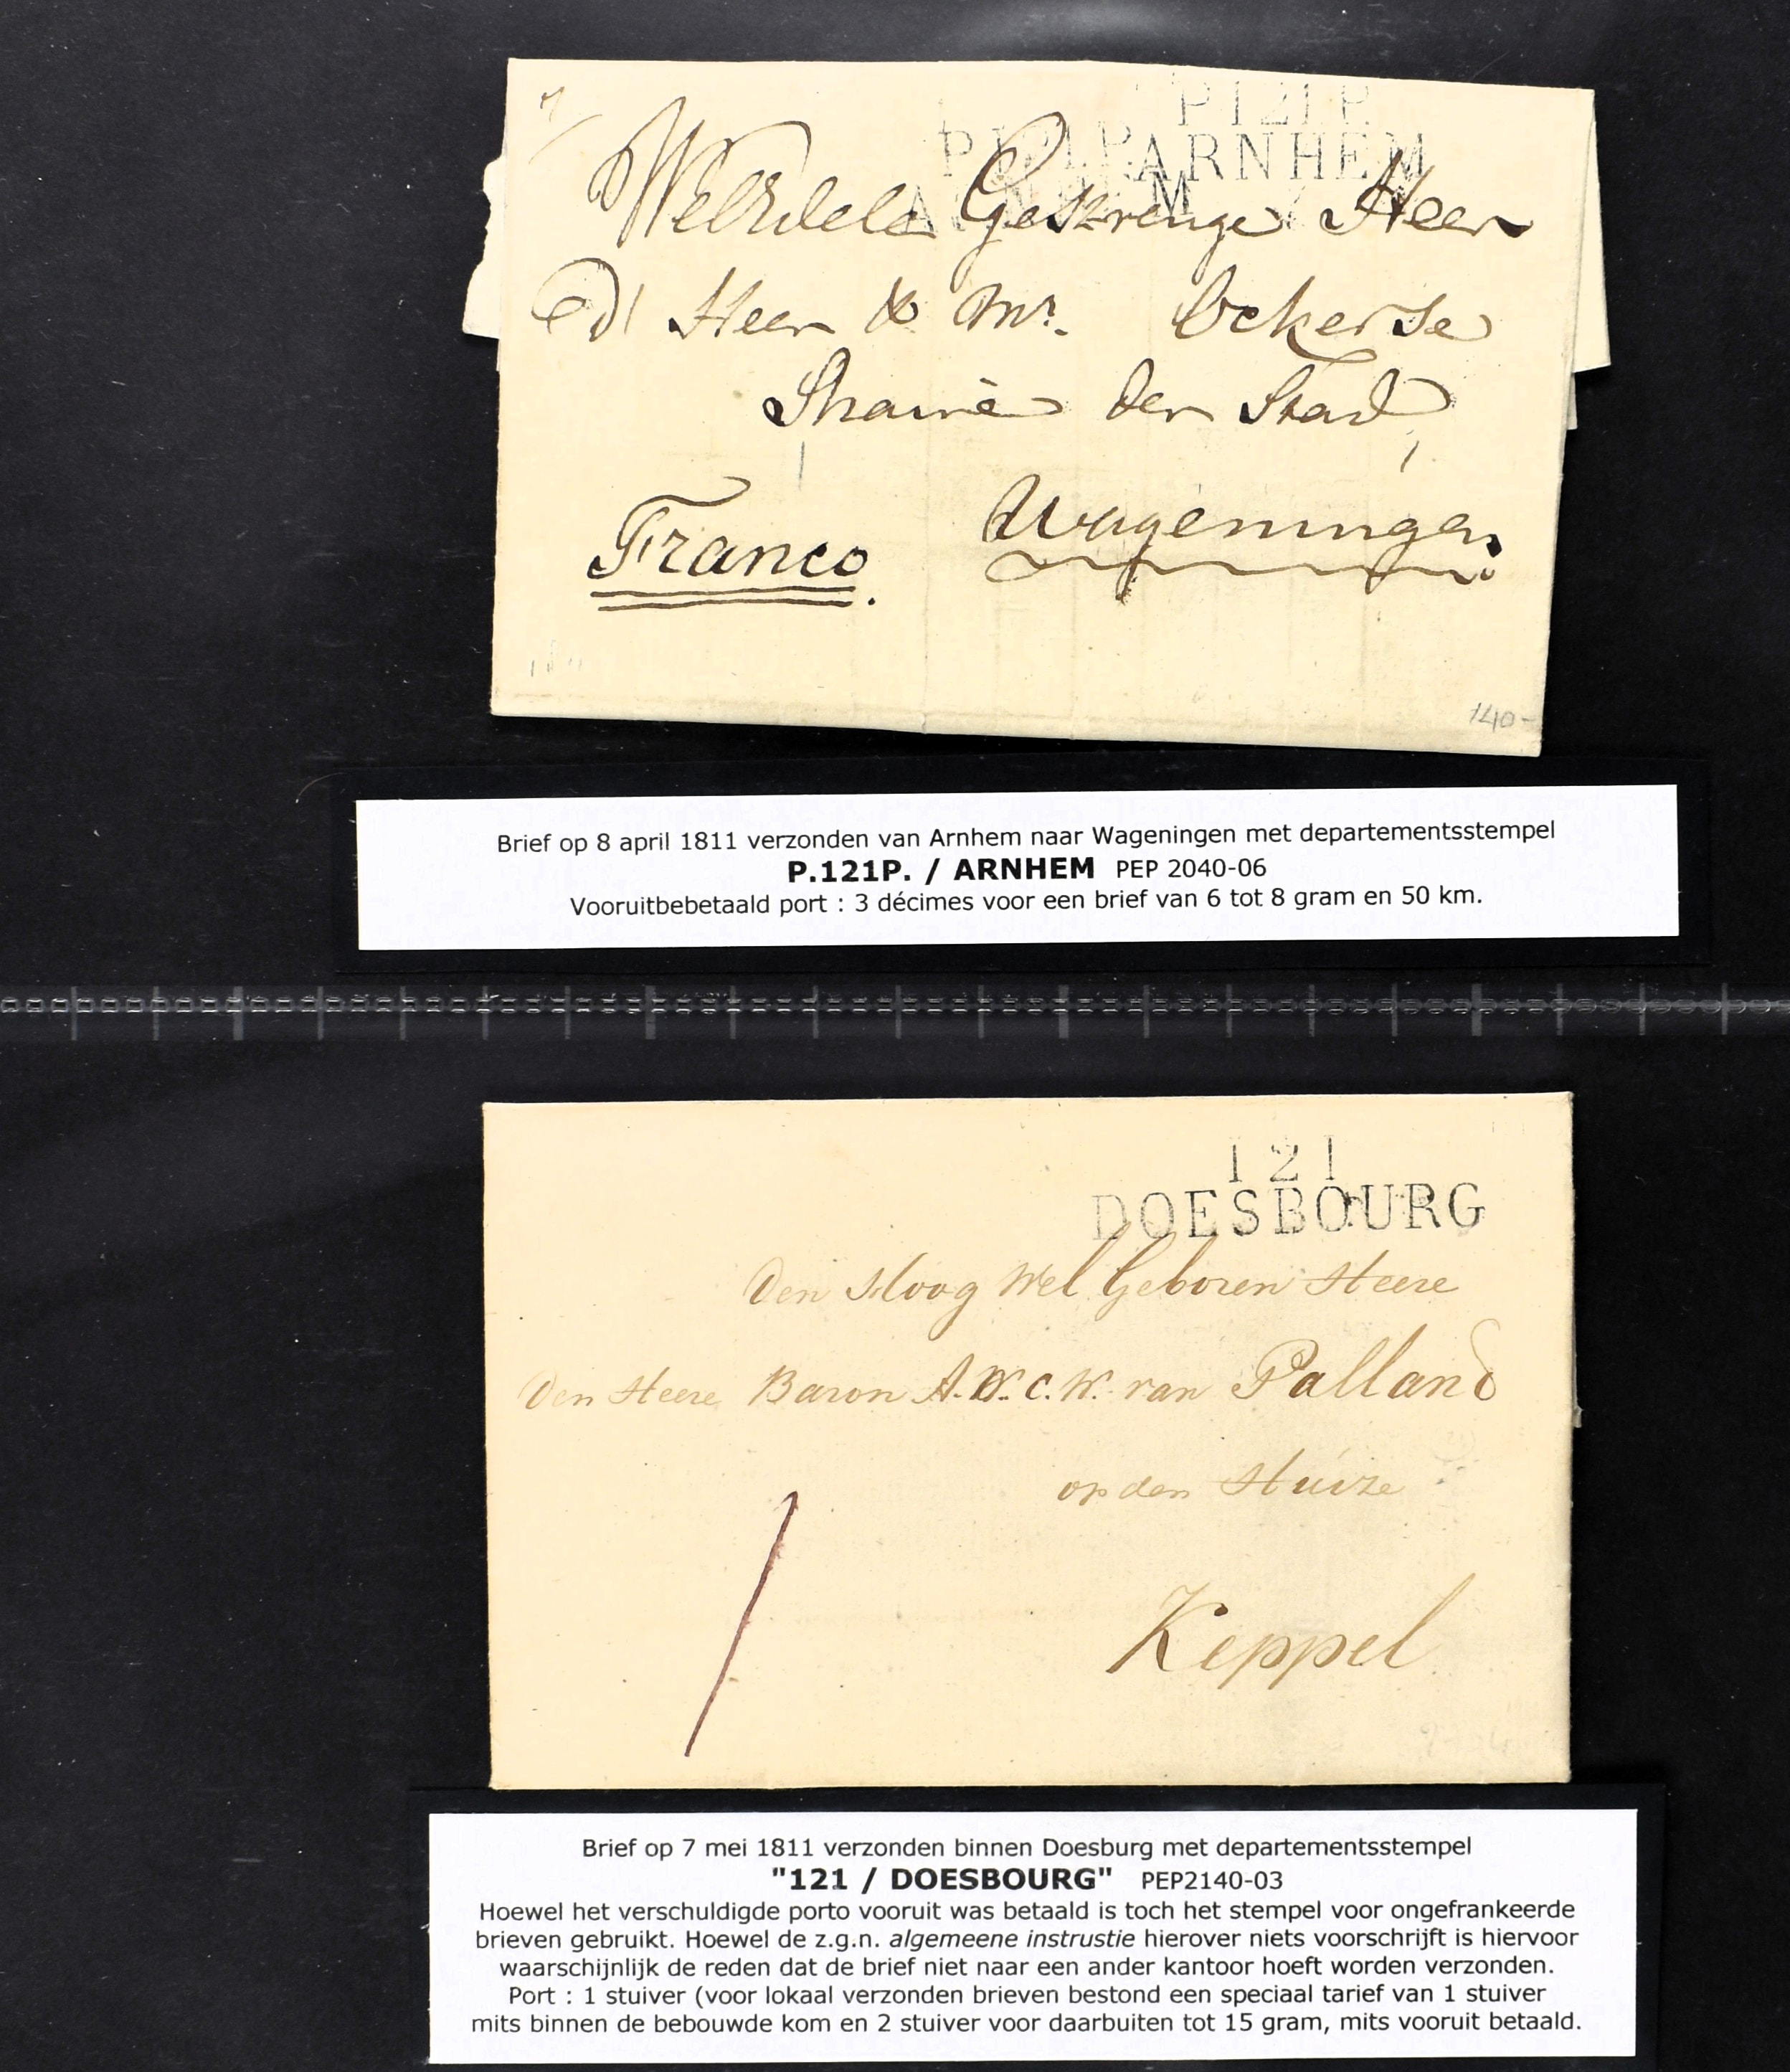 P121P.
ARNHEM
P121P.
ARNHEM
WelEdele Gestrenge Heer
Heer & Mr. Ockerse
Maire der Stad
Wageningen
Franco.
140-
Brief op 8 april 1811 verzonden van Arnhem naar Wageningen met departementsstempel
P.121P. / ARNHEM PEP 2040-06
Vooruitbebetaald port : 3 décimes voor een brief van 6 tot 8 gram en 50 km.
121
DOESBOURG
Den Hoog Wel Geboren Heere
Den Heere Baron A. W. C. W. van Palland
op den Huize
Keppel
1
Brief op 7 mei 1811 verzonden binnen Doesburg met departementsstempel
"121 / DOESBOURG" PEP2140-03
Hoewel het verschuldigde porto vooruit was betaald is toch het stempel voor ongefrankeerde
brieven gebruikt. Hoewel de z.g.n. algemeene instrustie hierover niets voorschrijft is hiervoor
waarschijnlijk de reden dat de brief niet naar een ander kantoor hoeft worden verzonden.
Port : 1 stuiver (voor lokaal verzonden brieven bestond een speciaal tarief van 1 stuiver
mits binnen de bebouwde kom en 2 stuiver voor daarbuiten tot 15 gram, mits vooruit betaald.